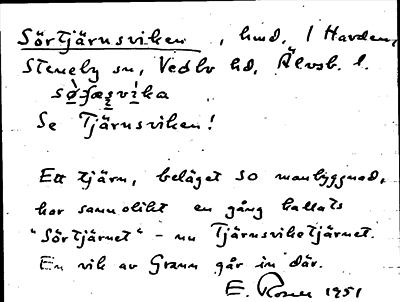 Sörtjärnsviken, hmd, I Harden,
Steneby sn, Vedbo hd, Älvsb. l.
Se Tjärnsviken!
Ett tjärn, beläget SO manbyggnad,
har sannolikt en gång kallats
"Sörtjärnet" - nu Tjärnsviketjärnet.
En vik av Grann går in där.
E. Rosell 1951